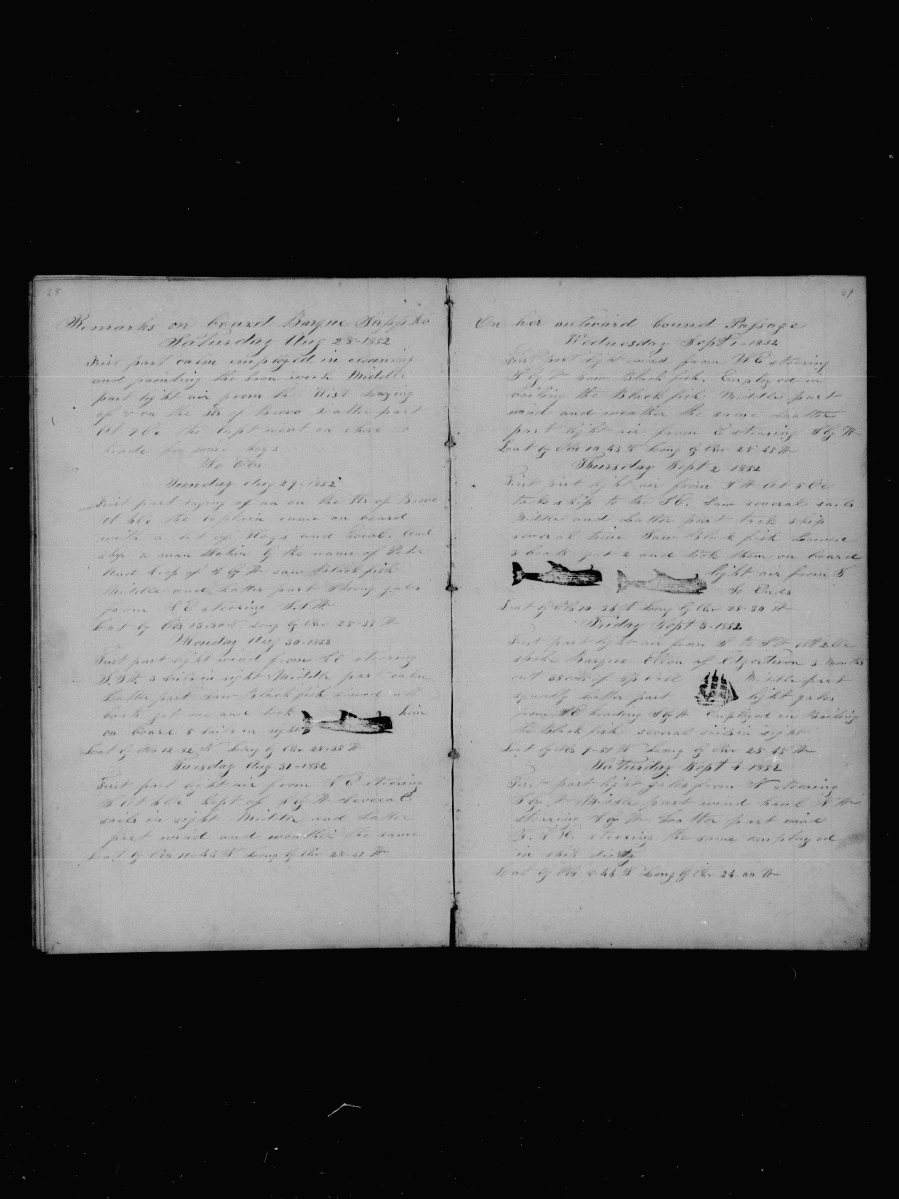 28
Remarks on board Barque Sappho
Saturday Aug 28-1852
First part calm employed in cleaning
and painting the Iron work Middle
part light air from the West laying
of & on the of Bravo Latter part
At 9 Oc the Capt went on shore in
boade for some hogs
No Obs
Sunday Aug 29-1852
First part laying of an on the of Bravo
At 6 Oc the captain came on board
with a lot of Hogs and And
ship a man by the name of
And keep of S by W saw Blackfish
Middle and Latter part Strong gales
from N E steering S S W
Lat by Obs 13-30 N Long by Chr 25-38 W
Monday Aug 30-1852
First part light wind from N E steering
3 sails in sight Middle part calm
Latter part saw Blackfish lowered all
boats got one and took him
on board 5 sails in sight
Lat by Obs 12-52 N Long by Chr 25-35 W
Tuesday Aug 31-1852
First part light air from N E steering
S At 6 Oc kept of S by W Several
sails in sight Middle and Latter
part wind and weather the same
Lat by Obs 11-43 N Long by Chr 25-21 W
29
On her outward bound Passage
Wednesday Sept 1-1852
First part light wind from N E steering
S by W Saw Blackfish. Employed in
boiling the Blackfish Middle part
wind and weather the same Latter
part light air from E steering S by W
Lat by Obs 10-43 N Long by Chr 25-45 W
Thursday Sept 2-1852
First part light air from S W At 5 Oc
tack ship to the S E. Saw several sails
Middle and Latter part tack ship
several time Saw Blackfish Lowered
3 boats got 2 and took them on board
light air from S
So Ends
Lat by Obs 10-36 N Long by Chr 25-30 W
Friday Sept 3-1852
First part light air from S to S W At 2 Oc
spoke Barque of Edgartown 3 months
out of sp oil Middle part
squally latter part light gales
from S E heading S by W Employed in Boiling
the Blackfish several sails in sight
Lat by Obs 9-51 N Long by Chr 25-45 W
Saturday Sept 4-1852
First part light gales from steering
S by W Middle part wind haul
steering S by W Latter part wind
steering the same employed
in ship duty
Lat by Obs 8-44 N Long by Chr 24-00 W